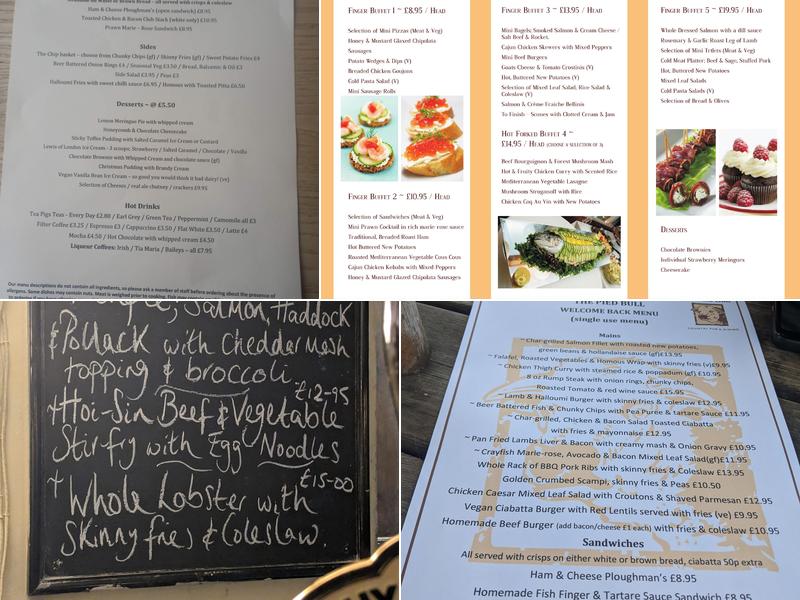 Ham & Cheese Ploughman's (open sandwich) £8.95
Toasted Chicken & Bacon Club Stack (white only) £10.95
Prawn Marie – Rose Sandwich £8.95
Sides
The Chip basket – choose from Chunky Chips (gf) / Skinny Fries (gf) / Sweet Potato Fries £4
Beer Battered Onion Rings £4 / Seasonal Veg £3.50 / Bread, Balsamic & Oil £3
Side Salad £3.95 / Peas £3
Halloumi Fries with sweet chilli sauce £6.95 / Houmous with Toasted Pitta £6.50
Desserts – @ £5.50
Lemon Meringue Pie with whipped cream
Honeycomb & Chocolate Cheesecake
Sticky Toffee Pudding with Salted Caramel Ice Cream or Custard
Lewis of London Ice Cream - 3 scoops; Strawberry / Salted Caramel / Chocolate / Vanilla
Chocolate Brownie with Whipped Cream and chocolate sauce (gf)
Christmas Pudding with Brandy Cream
Vegan Vanilla Bean Ice Cream – so good you would think it bad dairy! (ve)
Selection of Cheeses / real ale chutney / crackers £9.95
Hot Drinks
Tea Pigs Teas - Every Day £2.80 / Earl Grey / Green Tea / Peppermint / Camomile all £3
Filter Coffee £3.25 / Espresso £3 / Cappuccino £3.50 / Flat White £3.50 / Latte £4
Mocha £4.50 / Hot Chocolate with whipped cream £4.50
Liqueur Coffees: Irish / Tia Maria / Baileys – all £7.95
Our menu descriptions do not contain all ingredients, so please ask a member of staff before ordering about the presence of
allergens. Some dishes may contain nuts. Meat is weighed prior to cooking. Fish may contain
Finger Buffet 1 ~ £8.95 / Head
Selection of Mini Pizzas (Meat & Veg)
Honey & Mustard Glazed Chipolata
Sausages
Potato Wedges & Dips (V)
Breaded Chicken Goujons
Cold Pasta Salad (V)
Mini Sausage Rolls
Finger Buffet 2 ~ £10.95 / Head
Selection of Sandwiches (Meat & Veg)
Mini Prawn Cocktail in rich marie rose sauce
Traditional, Breaded Roast Ham
Hot Buttered New Potatoes
Roasted Mediterranean Vegetable Cous Cous
Cajun Chicken Kebabs with Mixed Peppers
Honey & Mustard Glazed Chipolata Sausages
Finger Buffet 3 ~ £13.95 / Head
Mini Bagels; Smoked Salmon & Cream Cheese /
Salt Beef & Rocket.
Cajun Chicken Skewers with Mixed Peppers
Mini Beef Burgers
Goats Cheese & Tomato Crostinis (V)
Hot, Buttered New Potatoes (V)
Selection of Mixed Leaf Salad, Rice Salad &
Coleslaw (V)
Salmon & Crème Fraiche Bellinis
To Finish – Scones with Clotted Cream & Jam
Hot Forked Buffet 4 ~
£14.95 / Head (choose a selection of 3)
Beef Bourguignon & Forest Mushroom Mash
Hot & Fruity Chicken Curry with Scented Rice
Mediterranean Vegetable Lasagne
Mushroom Stroganoff with Rice
Chicken Coq Au Vin with New Potatoes
Finger Buffet 5 ~ £19.95 / Head
Whole Dressed Salmon with a dill sauce
Rosemary & Garlic Roast Leg of Lamb
Selection of Mini Tartlets (Meat & Veg)
Cold Meat Platter; Beef & Sage; Stuffed Pork
Hot, Buttered New Potatoes
Mixed Leaf Salads
Cold Pasta Salads (V)
Selection of Bread & Olives
Desserts
Chocolate Brownies
Individual Strawberry Meringues
Cheesecake
Salmon, Haddock
& Pollack with Cheddar Mash
topping & broccoli.
£12-95
Hoi-Sin Beef & Vegetable
Stir-fry with Egg Noodles
£15-00
Whole Lobster with
Skinny fries & Coleslaw.
THE PIED BULL
WELCOME BACK MENU
(single use menu)
Mains
~ Char-grilled Salmon Fillet with roasted new potatoes,
green beans & hollandaise sauce (gf)£13.95
~ Falafel, Roasted Vegetables & Homous Wrap with skinny fries (v)£9.95
~ Chicken Thigh Curry with steamed rice & poppadum (gf) £10.95
8 oz Rump Steak with onion rings, chunky chips,
Roasted Tomato & red wine sauce £15.95
~ Lamb & Halloumi Burger with skinny fries & coleslaw £12.95
~ Beer Battered Fish & Chunky Chips with Pea Puree & tartare Sauce £11.95
~ Char-grilled, Chicken & Bacon Salad Toasted Ciabatta
with fries & mayonnaise £12.95
~ Pan Fried Lambs Liver & Bacon with creamy mash & Onion Gravy £10.95
~ Crayfish Marie-rose, Avocado & Bacon Mixed Leaf Salad(gf)£11.95
Whole Rack of BBQ Pork Ribs with skinny fries & Coleslaw £13.95
Golden Crumbed Scampi, skinny fries & Peas £10.50
Chicken Caesar Mixed Leaf Salad with Croutons & Shaved Parmesan £12.95
Vegan Ciabatta Burger with Red Lentils served with fries (ve) £9.95
Homemade Beef Burger (add bacon/cheese £1 each) with fries & coleslaw £10.95
Sandwiches
All served with crisps on either white or brown bread, ciabatta 50p extra
Ham & Cheese Ploughman's £8.95
Homemade Fish Finger & Tartare Sauce Sandwich £8.95